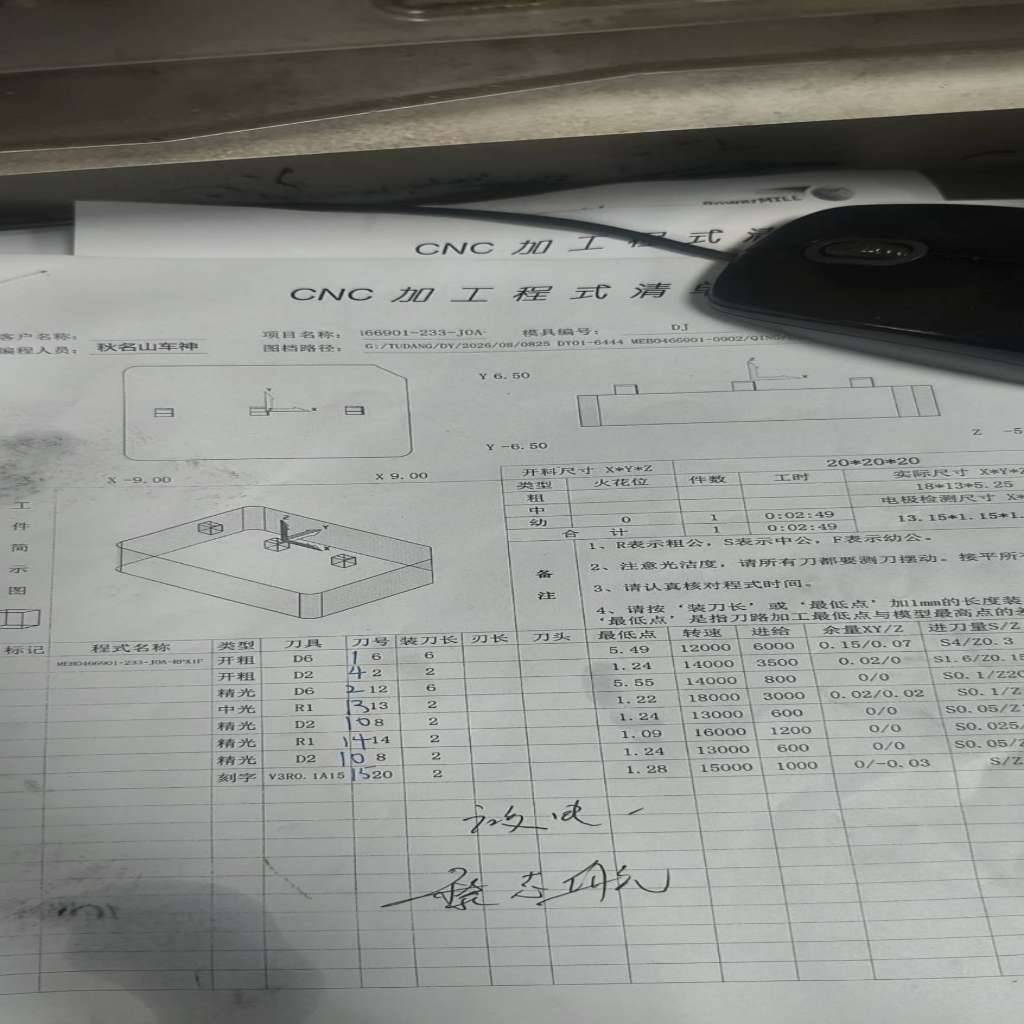 PowerMILL
CNC 加 工 程 式 清
CNC 加 工 程 式 清 单
客户名称:
项目名称: i66901-233-J0A- 模具编号: DJ
编程人员: 秋名山车神 图档路径: G:/TUDANG/DY/2026/08/0825 DY01-6444 MEB0466901-0902/QING
Y 6.50
Y -6.50
Z -5
X -9.00 X 9.00
开料尺寸 X*Y*Z 20*20*20
类型 火花位 件数 工时 实际尺寸 X*Y*Z
粗 18*13*5.25
中 电极检测尺寸 X*
幼 0 1 0:02:49 13.15*1.15*1.
合 计 1 0:02:49
工件简示图
备注
1、R表示粗公，S表示中公，F表示幼公。
2、注意光洁度，请所有刀都要测刀摆动。接平所
3、请认真核对程式时间。
4、请按‘装刀长’或‘最低点’加1mm的长度装
‘最低点’是指刀路加工最低点与模型最高点的
标记 程式名称 类型 刀具 刀号 装刀长 刃长 刀头 最低点 转速 进给 余量XY/Z 进刀量S/Z
MEB0466901-233-J0A-RPX1F 开粗 D6 1 6 6 5.49 12000 6000 0.15/0.07 S4/Z0.3
开粗 D2 4 2 2 1.24 14000 3500 0.02/0 S1.6/Z0.15
精光 D6 2 12 6 5.55 14000 800 0/0 S0.1/Z20
中光 R1 13 13 2 1.22 18000 3000 0.02/0.02 S0.1/Z
精光 D2 10 8 2 1.24 13000 600 0/0 S0.05/Z
精光 R1 14 14 2 1.09 16000 1200 0/0 S0.025/
精光 D2 10 8 2 1.24 13000 600 0/0 S0.05/Z
刻字 V3R0.1A15 15 20 2 1.28 15000 1000 0/-0.03 S/Z